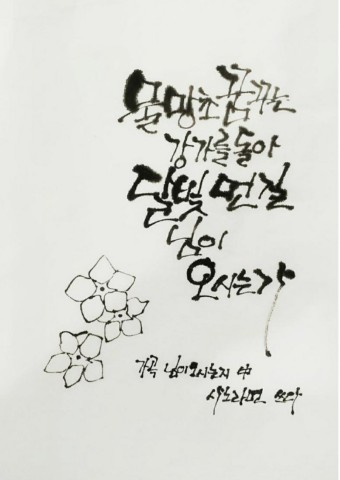 물망초 꿈꾸는
강가를 돌아
달빛 먼길
님이
오시는가
가곡 님이오시는지 中
사노라면 쓰다